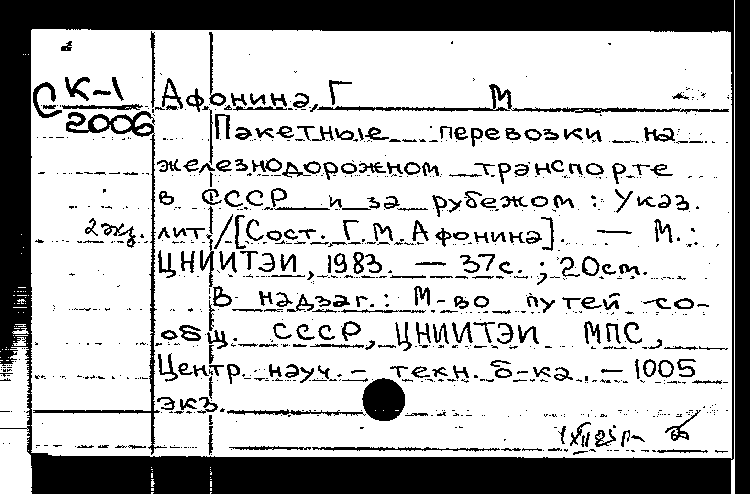 С К-1
2006
Афонина, Г М
Пакетные перевозки на
железнодорожном транспорте
в СССР и за рубежом : Указ.
2 экз. лит. / [Сост. Г.М. Афонина]. — М. :
ЦНИИТЭИ, 1983. — 37с. ; 20см.
В надзаг.: М-во путей со-
общ. СССР, ЦНИИТЭИ МПС,
Центр. науч.- техн. б-ка. — 1005
экз.